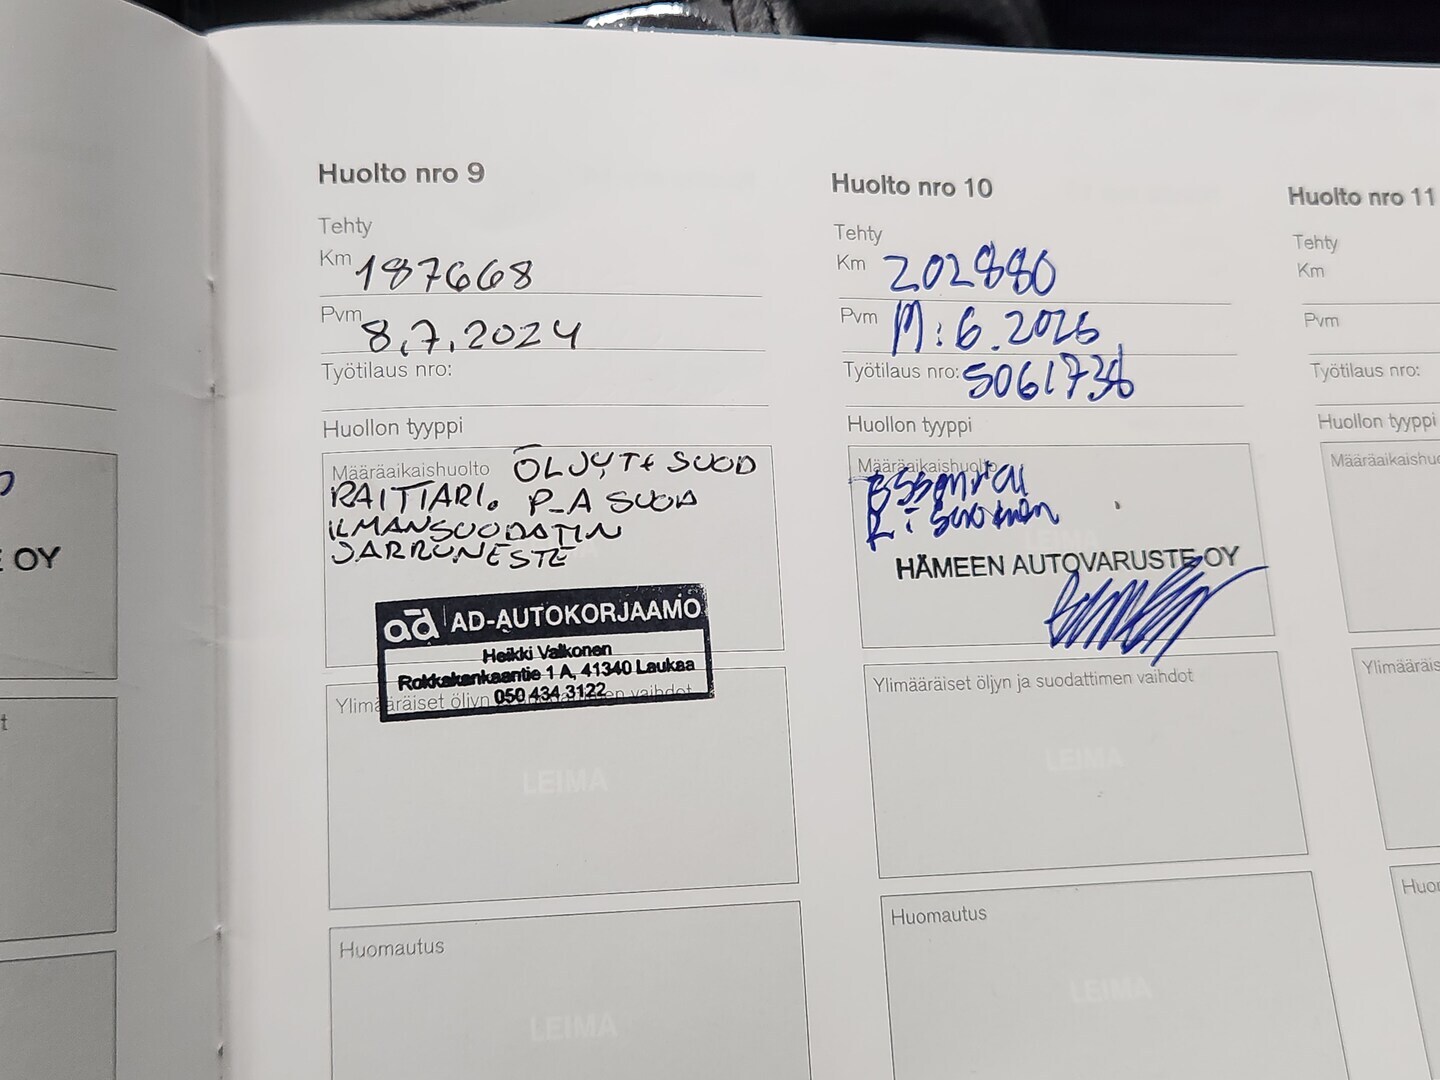 OY
t
Huolto nro 9
Tehty
Km 187668
Pvm 8.7.2024
Työtilaus nro:
Huollon tyyppi
Määräaikaishuolto ÖLJYT+ SUOD
RAITTIARI. P-A SUOD
ILMANSUODATIN
JARRUNESTE
ad AD-AUTOKORJAAMO
Heikki Valkonen
Rokkakankaantie 1 A, 41340 Laukaa
050 434 3122
Ylimääräiset öljyn ja suodattimen vaihdot
LEIMA
Huomautus
LEIMA
Huolto nro 10
Tehty
Km 202880
Pvm 6.2026
Työtilaus nro: 5061738
Huollon tyyppi
Määräaikaishuolto
Essential
HÄMEEN AUTOVARUSTE OY
Ylimääräiset öljyn ja suodattimen vaihdot
LEIMA
Huomautus
LEIMA
Huolto nro 11
Tehty
Km
Pvm
Työtilaus nro:
Huollon tyyppi
Määräaikaishuo
Ylimääräis
Huor